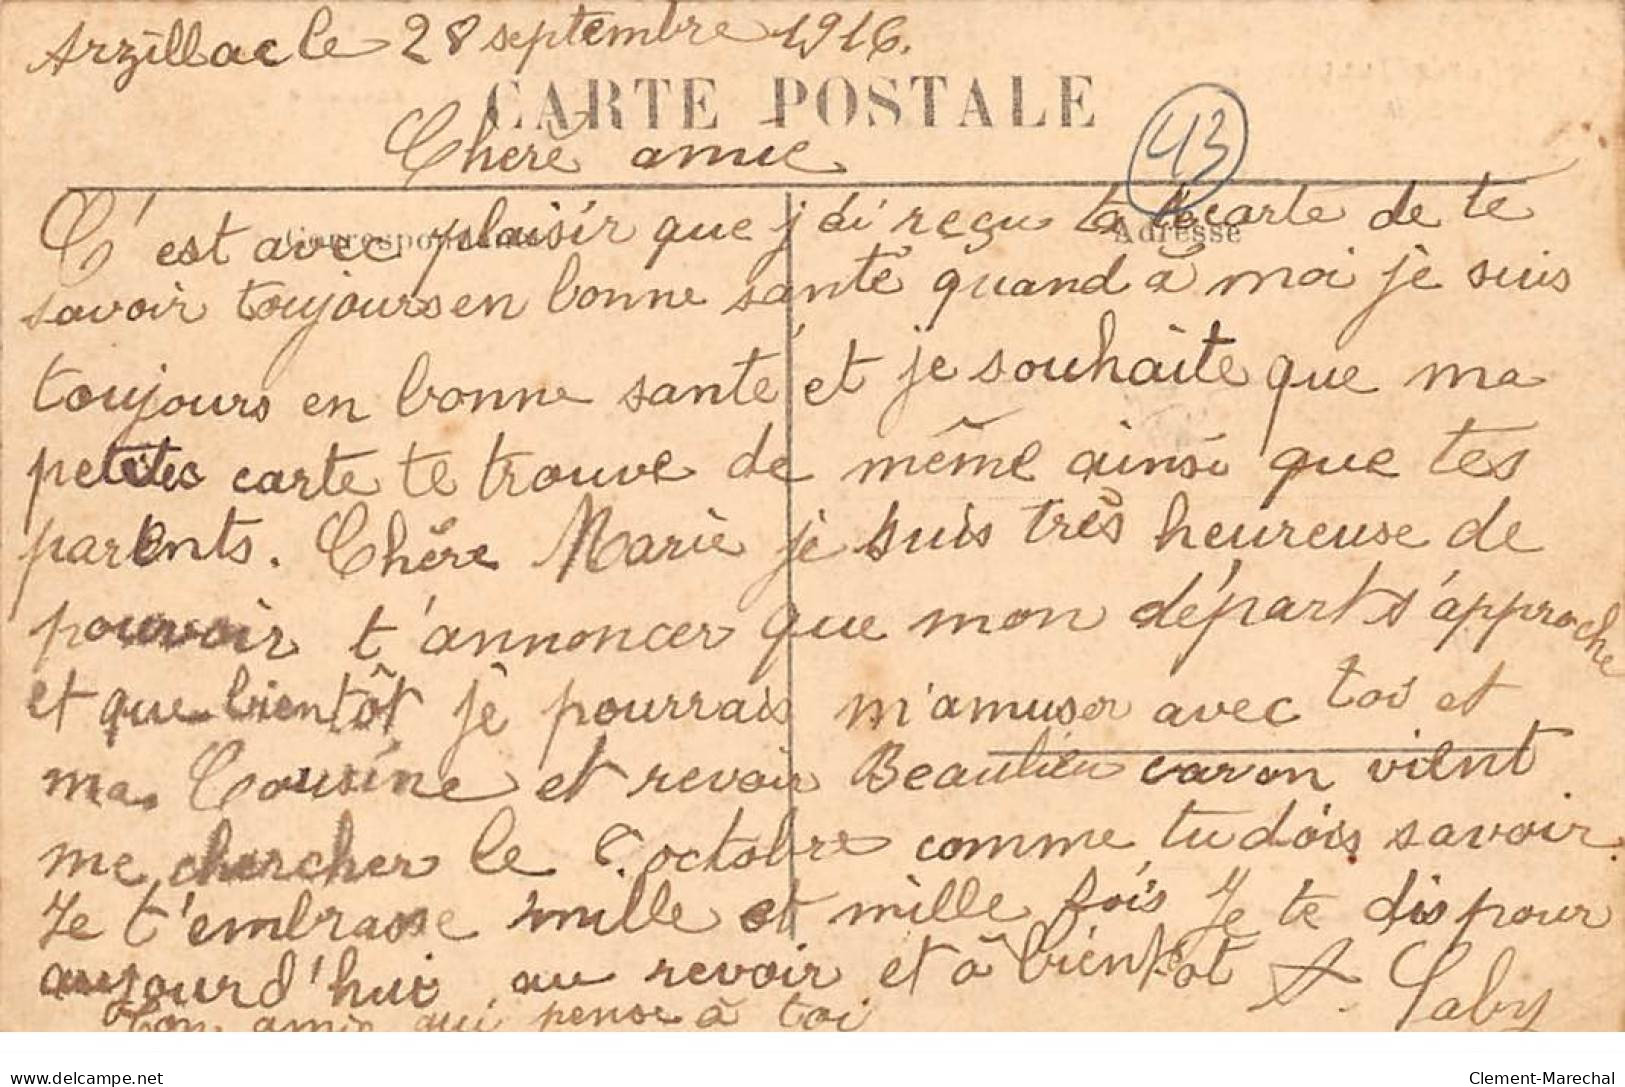 Arzillac le 28 septembre 1916.
CARTE POSTALE
43
Chère amie
Correspondance
Adresse
C'est avec plaisir que j'ai reçu ta carte de te
savoir toujours en bonne santé quand à moi je suis
toujours en bonne santé et je souhaite que ma
petites carte te trouve de même ainsi que tes
parents. Chére Marie je suis très heureuse de
pouvoir t'annoncer que mon départ s'approche
et que bientôt je pourrais m'amuser avec toi et
ma Cousine et revoir Beaulieu caron vient
me chercher le 8 octobre comme tu dois savoir.
Je t'embrasse mille et mille fois Je te dis pour
aujourd'hui au revoir et à bientot A. Gaby
Ton amie qui pense à toi
Clement-Marechal
delcampe.net